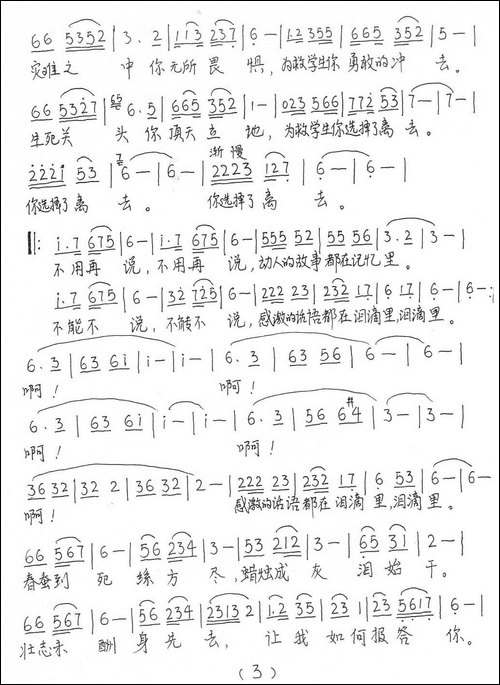 66 5352 | 3. 2 | 113 237 | 6 — | 1.2 355 | 665 352 | 5 — |
灾难之 中 你无所畏 惧，为救学生你勇敢的冲 去。
66 5327 | 6. 5 | 665 352 | 1 — | 023 566 | 772 53 | 7 — | 7 — |
生死关 头 你顶天立 地，为救学生你选择了离 去。
渐慢
2221 53 | 6 — | 6 — | 2223 127 | 6 — | 6 — |
你选择了离 去。 你选择了离 去。
‖: i.7 675 | 6 — | i.7 675 | 6 — | 555 52 | 55 56 | 3. 2 | 3 — |
不用再 说，不用再 说，动人的故事都在记忆里。
i.7 675 | 6 — | 32 725 | 6 — | 222 23 | 232 17 | 6 17 | 6 — | 6 — :
不能不 说，不能不 说，感激的话语都在泪滴里，泪滴里。
6. 3 | 63 6i | i — | i — | 6. 3 | 63 56 | 6 — | 6 — |
啊！ 啊！
6. 3 | 63 6i | i — | i — | 6. 3 | 56 6#4 | 3 — | 3 — |
啊！ 啊！
36 32 | 32 2 | 36 32 | 2 — | 222 23 | 232 17 | 6 53 | 6 — | 6 —
啊！ 感激的话语都在 泪滴里，泪滴里。
66 567 | 6 — | 56 234 | 3 — | 53 212 | 3 — | 65 31 | 2 — |
春蚕到 死 丝方 尽，蜡烛成 灰 泪始 干。
66 567 | 6 — | 56 234 | 2313 2 | 1.2 35 | 23 1 | 23 5617 | 6 — |
壮志未 酬 身先 去， 让我 如何报答 你。
(3)